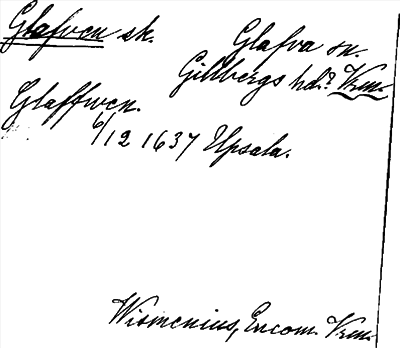 Glafven sk.
Glafva sn.
Gillbergs hd. Vrm.
Glaffwen.
6/12 1637 Upsala.
Wismenius, Encom. Vrm.